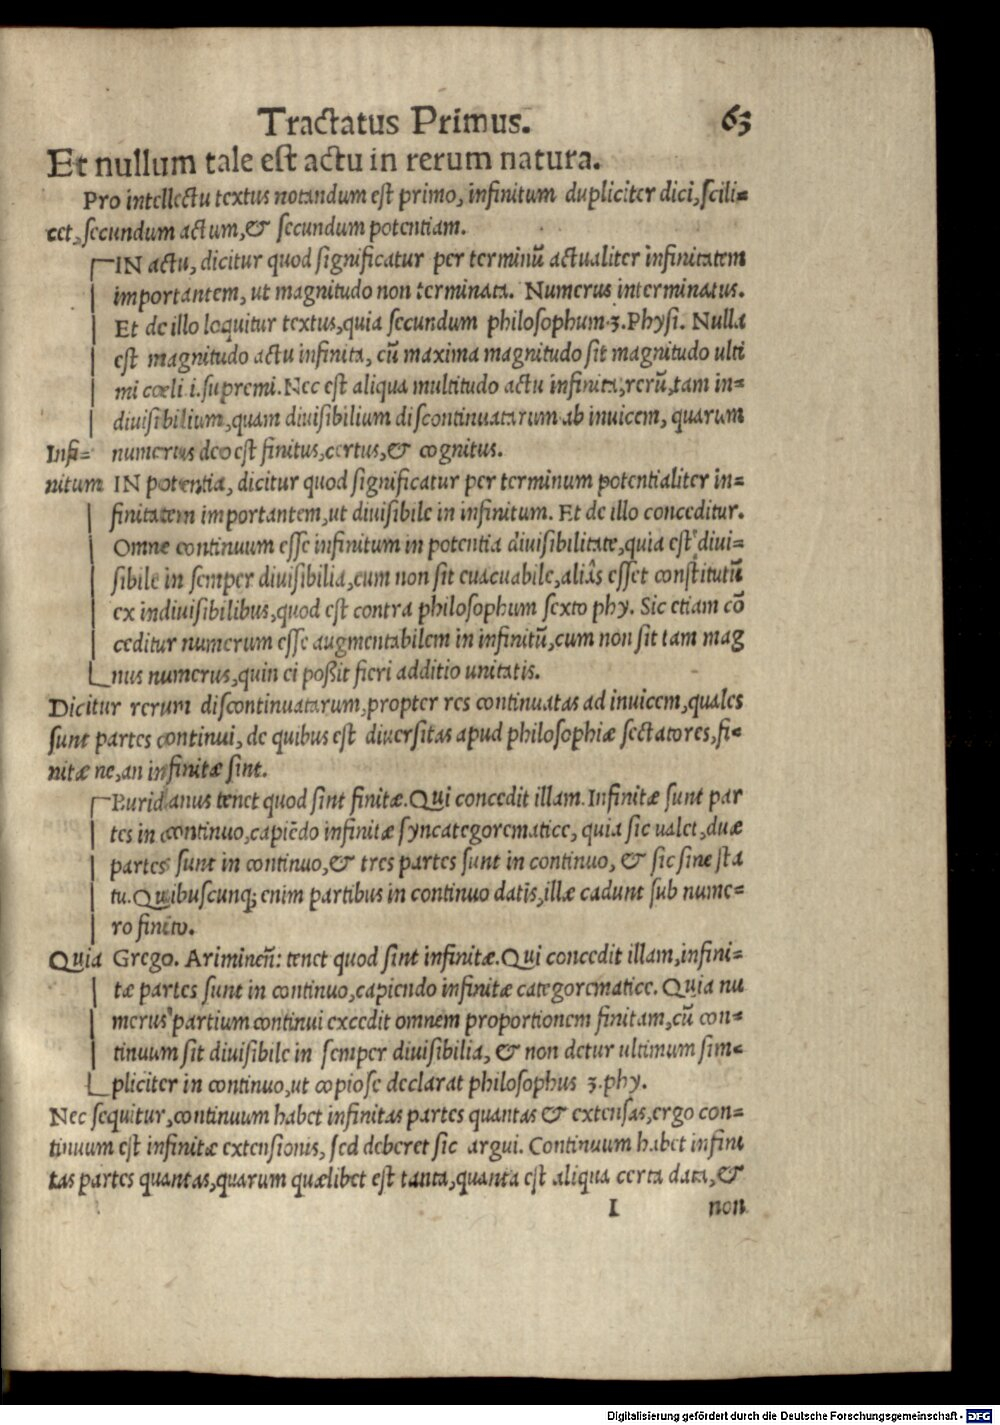 Tractatus Primus. 63
Et nullum tale est actu in rerum natura.
Pro intellectu textus notandum est primo, infinitum dupliciter dici, scili=
cet, secundum actum, & secundum potentiam.
IN actu, dicitur quod significatur per terminū actualiter infinitatem
importantem, ut magnitudo non terminata. Numerus interminatus.
Et de illo loquitur textus, quia secundum philosophum 3. Physi. Nulla
est magnitudo actu infinita, cū maxima magnitudo sit magnitudo ulti
mi cœli i. supremi. Nec est aliqua multitudo actu infinita, rerū, tam in=
diuisibilium, quam diuisibilium discontinuatarum ab inuicem, quarum
Infi= numerus deo est finitus, certus, & cognitus.
nitum IN potentia, dicitur quod significatur per terminum potentialiter in=
finitatem importantem, ut diuisibile in infinitum. Et de illo conceditur.
Omne continuum esse infinitum in potentia diuisibilitate, quia est diui=
sibile in semper diuisibilia, cum non sit euacuabile, aliâs esset constitutū
ex indiuisibilibus, quod est contra philosophum sexto phy. Sic etiam cō
ceditur numerum esse augmentabilem in infinitū, cum non sit tam mag
nus numerus, quin ei poßit fieri additio unitatis.
Dicitur rerum discontinuatarum, propter res continuatas ad inuicem, quales
sunt partes continui, de quibus est diuersitas apud philosophiæ sectatores, fi=
nitæ ne, an infinitæ sint.
Buridanus tenet quod sint finitæ. Qui concedit illam. Infinitæ sunt par
tes in continuo, capiēdo infinitæ syncategorematice, quia sic ualet, duæ
partes sunt in continuo, & tres partes sunt in continuo, & sic sine sta
tu. Quibuscunq; enim partibus in continuo datis, illæ cadunt sub nume=
ro finito.
Quia Grego. Arimineñ: tenet quod sint infinitæ. Qui concedit illam, infini=
tæ partes sunt in continuo, capiendo infinitæ categorematice. Quia nu
merus partium continui excedit omnem proportionem finitam, cū con=
tinuum sit diuisibile in semper diuisibilia, & non detur ultimum sim=
pliciter in continuo, ut copiose declarat philosophus 3. phy.
Nec sequitur, continuum habet infinitas partes quantas & extensas, ergo con=
tinuum est infinitæ extensionis, sed deberet sic argui. Continuum habet infini
tas partes quantas, quarum quælibet est tanta, quanta est aliqua certa data, &
I non
Digitalisierung gefördert durch die Deutsche Forschungsgemeinschaft - DFG